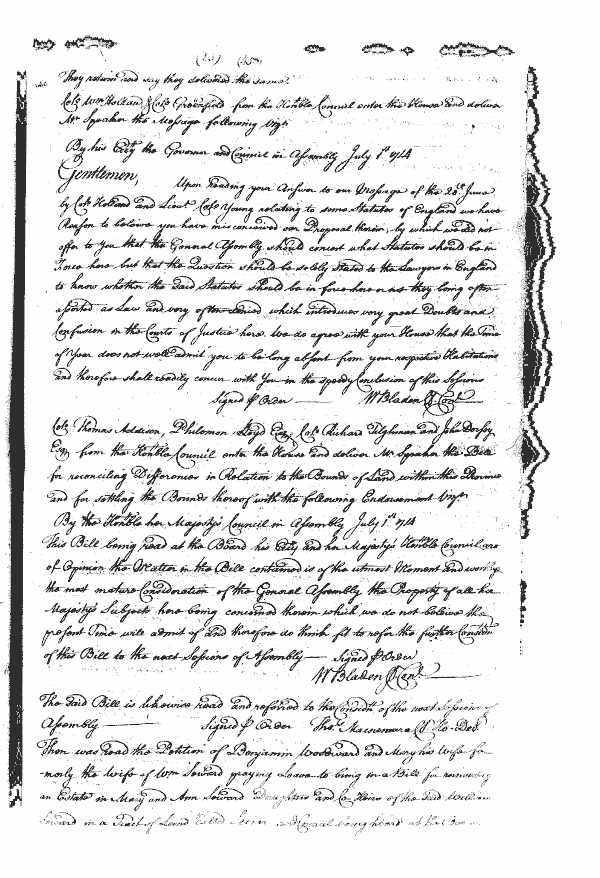 They return and say they delivered the same.
Colo. Wm. Holland & Colo. Greenfield from the Honble Council enter the House and deliver
Mr Speaker the Message following Vizt.
By his Exty the Governor and Council in Assembly July 1st 1714
Gentlemen,
Upon Reading your Answer to our Message of the 28th June
by Colo. Holland and Lieut. Colo. Young relating to some Statutes of England we have
Reason to beleive you have misconceived our Proposal therein, by which we did not
offer to you that the General Assembly should concert what Statutes should be in
Force here but that the Question should be solely Stated to the Lawyers in England
to know whether the said Statutes should be in force here or not they being often
asserted as Law and very often denied which introduces very great Doubts and
Confusion in the Courts of Justice here. We do agree with your House that the Time
of Year does not well admit you to be long absent from your respective Habitations
and therefore shall readily concur with You in the speedy Conclusion of this Sessions
Signed p Order W Bladen Cl. Conl.
Colo. Thomas Addison, Philemon Lloyd Esq, Colo. Richard Tilghman and John Dorsey
Esq from the Honble Council enter the House and deliver Mr. Speaker the Bill
for reconciling Differences in Relation to the Bounds of Land within this Province
and for settling the Bounds thereof with the following Endorsement Vizt.
By the Honble her Majestys Council in Assembly July 1st 1714
This Bill being read at the Board his Exty and her Majestys Honble Council are
of Opinion the Matter in the Bill contained is of the utmost Moment and worthy
the most mature Consideration of the General Assembly the Property of all her
Majestys Subjects here being concerned therein which we do not beleive the
present Time will admit of and therefore do think fit to refer the further Consider
of this Bill to the next Sessions of Assembly Signed p Order
W Bladen Cl Con.
The said Bill is likewise read and referred to the Consider of the next Sessions of
Assembly Signed p Order Thos. Macnemara Cl. Ho. Del.
Then was read the Petition of Benjamin Woodward and Mary his Wife for
-merly the wife of Wm Soward praying Leave to bring in a Bill for
an Estate in Mary and Ann Soward Daughters and Co Heires of the said William
Soward in a Tract of Land called and Council being heard at the